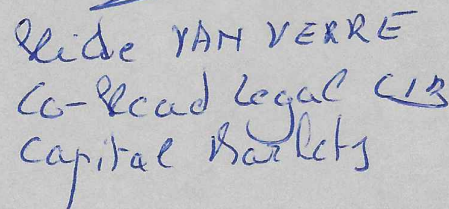 Hilde VAN VERRE
Co-Head Legal CIB
Capital Markets